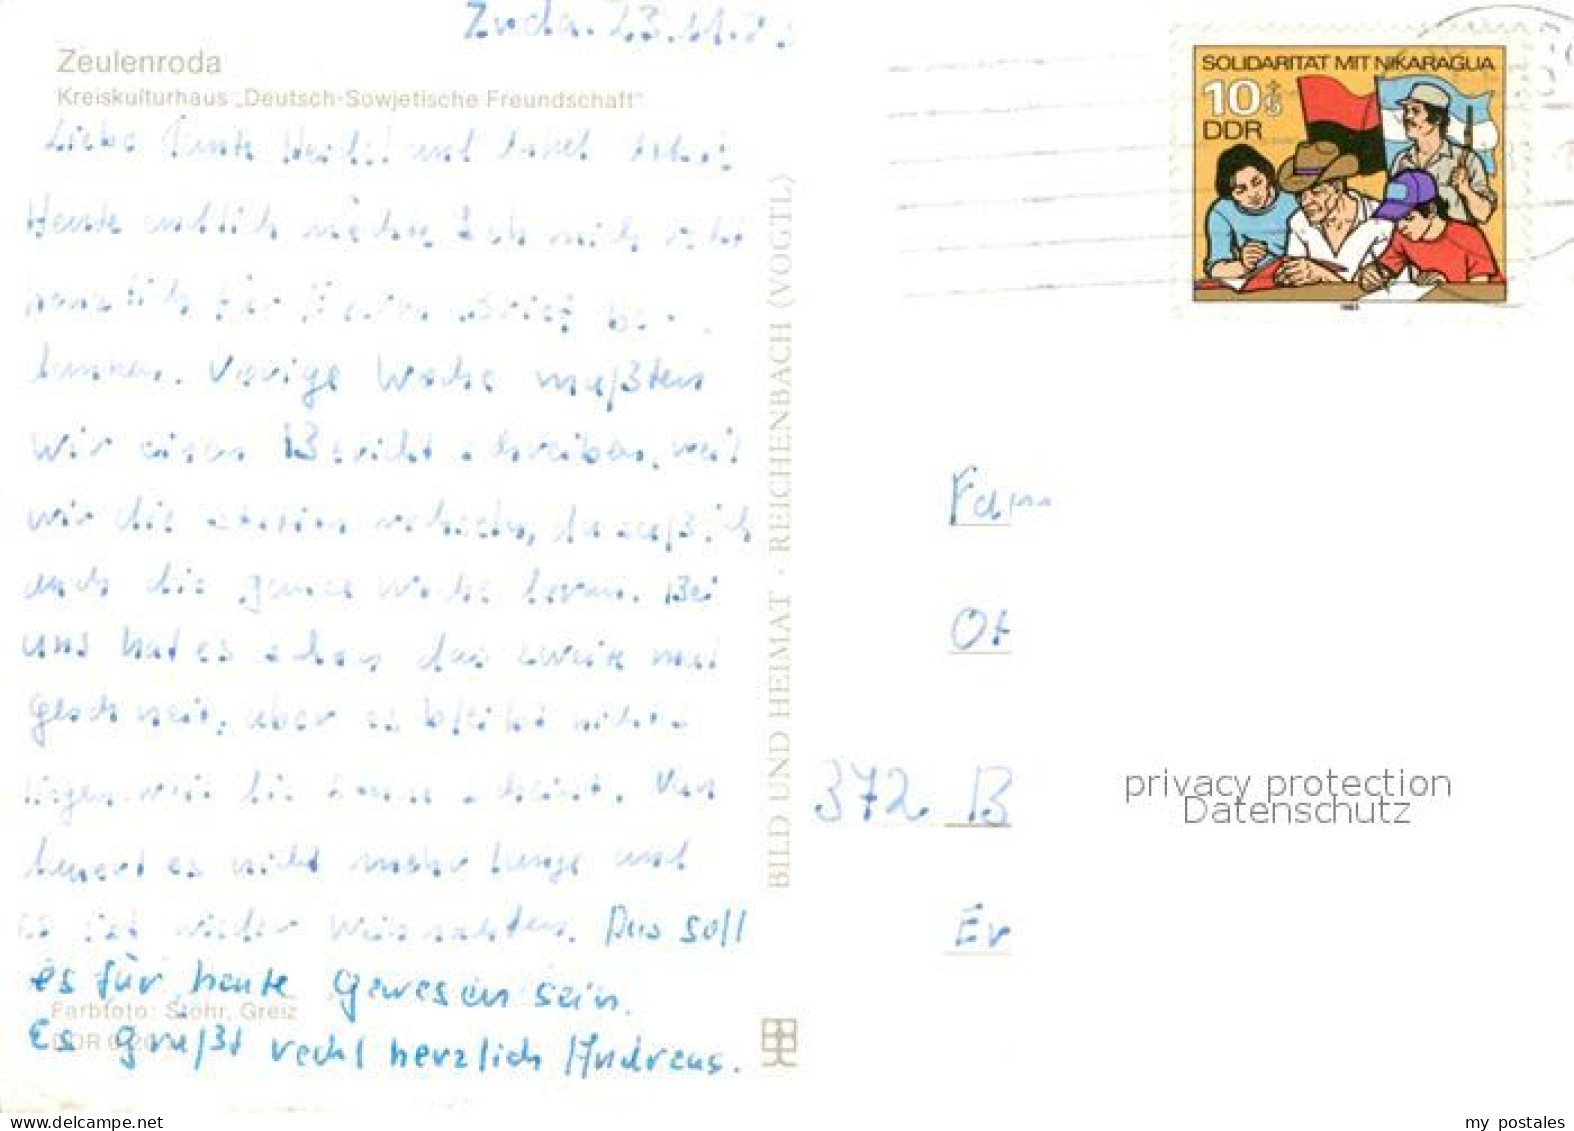 Zeulenroda
Kreiskulturhaus „Deutsch-Sowjetische Freundschaft"
SOLIDARITÄT MIT NIKARAGUA
10+5
DDR
1983
Liebe Tante und
Heute endlich möchte Ich mich recht
herzlich für Brief be-
danken. Vorige Woche mußten
wir einen Bericht schreiben, weil
wir die da saß ich
auch die ganze Woche daran. Bei
uns hat es schon das zweite mal
geschneit, aber es bleibt nichts
liegen weil die Sonne scheint. Nun
dauert es nicht mehr lange und
es ist wieder Weihnachten. Das soll
es für heute gewesen sein.
Es grüßt recht herzlich Andreas.
Farbfoto: Stöhr, Greiz
DDR
BILD UND HEIMAT · REICHENBACH (VOGTL)
Fam
Ot
372 B
Er
privacy protection
Datenschutz
www.delcampe.net
my_postales